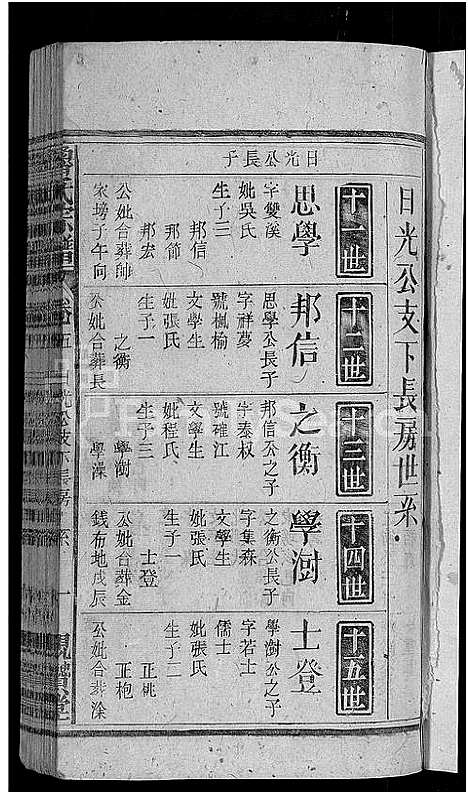 日光公支下長房世系
日光公長子
十一世
思學
字雙溪
妣吳氏
生子三
邦信
邦節
邦宏
公妣合葬帥
家塝子午向
十二世
邦信
思學公長子
字祥蔓
號楓榆
文學生
妣張氏
生子一
之衡
公妣合葬長
十三世
之衡
邦信公之子
字泰权
號確江
文學生
妣程氏
生子三
學澍
學澡
十四世
學澍
之衡公長子
字集森
文學生
妣張氏
生子一
士登
公妣合葬金
錢布地戌辰
十五世
士登
學澍公之子
字若士
儒士
妣張氏
生子二
正桃
正枹
公妣合葬深